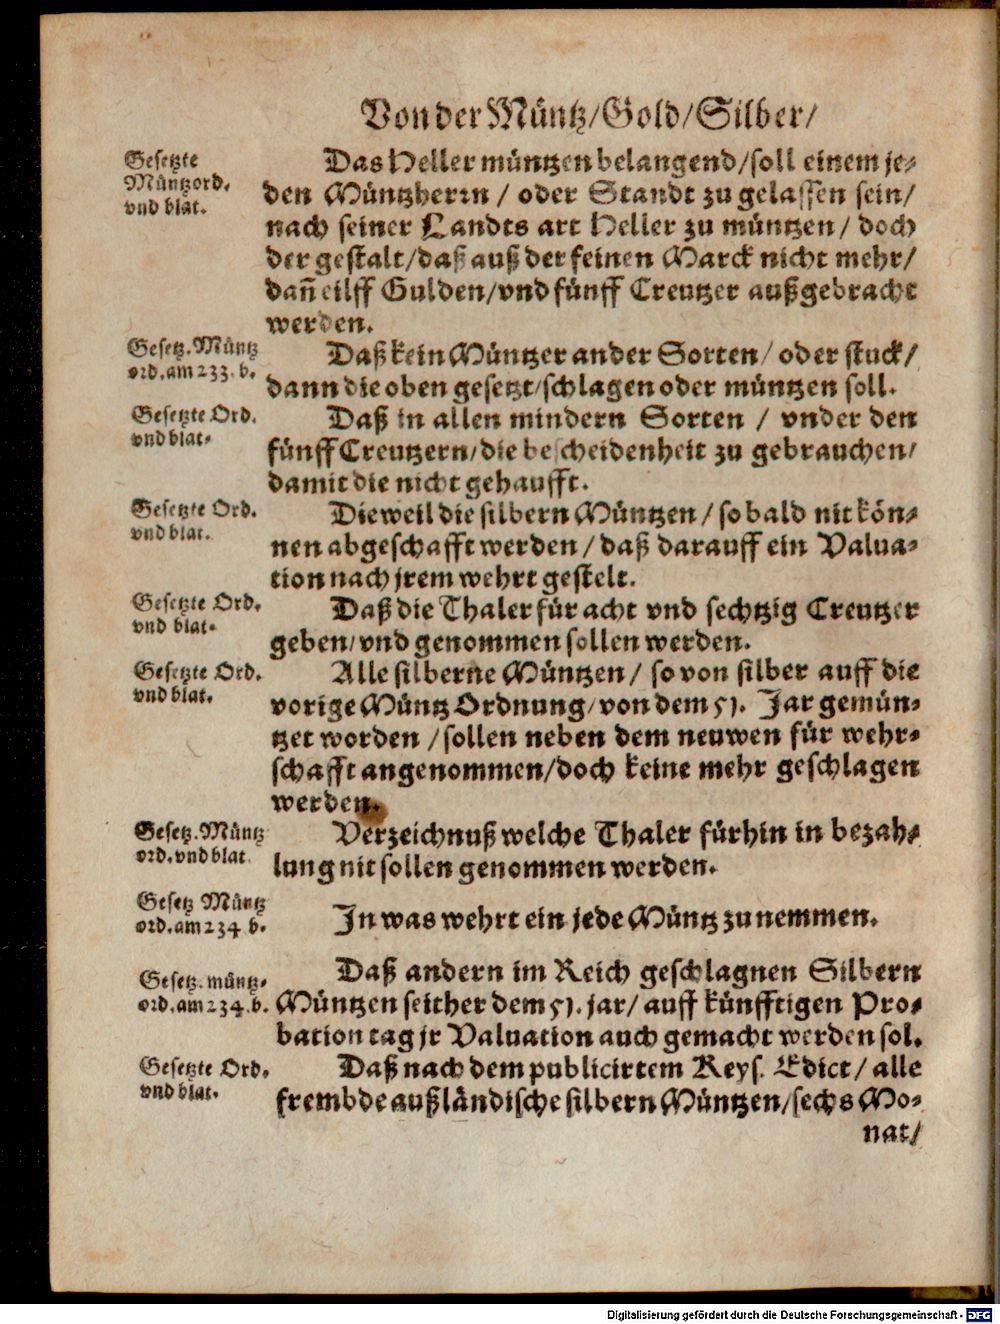 Von der Müntz/Gold/Silber/
Gesetzte
Müntzord.
vnd blat.
Das Heller müntzen belangend/soll einem je-
den Müntzherrn / oder Standt zu gelassen sein/
nach seiner Landts art Heller zu müntzen / doch
der gestalt/daß auß der feinen Marck nicht mehr/
dañ eilff Gulden/vnd fünff Creutzer außgebracht
werden.
Gesetz.Müntz
ord.am 233. b.
Daß kein Müntzer ander Sorten/ oder stuck/
dann die oben gesetzt/schlagen oder müntzen soll.
Gesetzte Ord.
vnd blat.
Daß in allen mindern Sorten / vnder den
fünff Creutzern/die bescheidenheit zu gebrauchen/
damit die nicht gehaufft.
Gesetzte Ord.
vnd blat.
Dieweil die silbern Müntzen / so bald nit kön-
nen abgeschafft werden / daß darauff ein Valua-
tion nach jrem wehrt gestelt.
Gesetzte Ord.
vnd blat.
Daß die Thaler für acht vnd sechtzig Creutzer
geben/vnd genommen sollen werden.
Gesetzte Ord.
vnd blat.
Alle silberne Müntzen / so von silber auff die
vorige Müntz Ordnung/von dem 51. Jar gemün-
tzet worden /sollen neben dem neuwen für wehr-
schafft angenommen/doch keine mehr geschlagen
werden.
Gesetz.Müntz
ord.vnd blat.
Verzeichnuß welche Thaler fürhin in bezah-
lung nit sollen genommen werden.
Gesetz Müntz
ord.am 234 b.
In was wehrt ein jede Müntz zu nemmen.
Gesetz.müntz-
ord.am 234.b.
Daß andern im Reich geschlagnen Silbern
Müntzen seither dem 51. jar/ auff künfftigen Pro-
bation tag jr Valuation auch gemacht werden sol.
Gesetzte Ord.
vnd blat.
Daß nach dem publicirtem Keys. Edict/ alle
frembde außländische silbern Müntzen/sechs Mo-
nat/
Digitalisierung gefördert durch die Deutsche Forschungsgemeinschaft - DFG